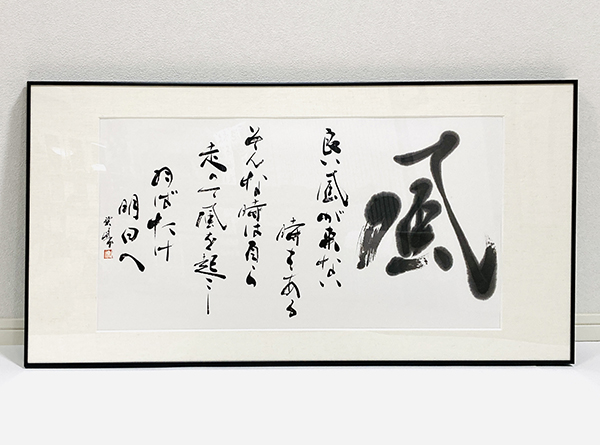 風
良い風が来ない
時もある
そんな時は自ら
走って風を起こし
羽ばたけ
明日へ